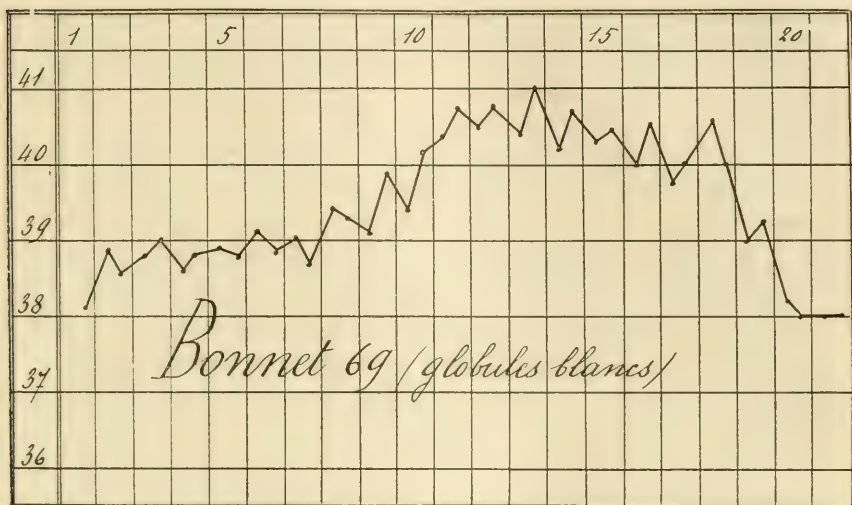 1 5 10 15 20
41
40
39
38
37
36
Bonnet 69 (globules blancs)